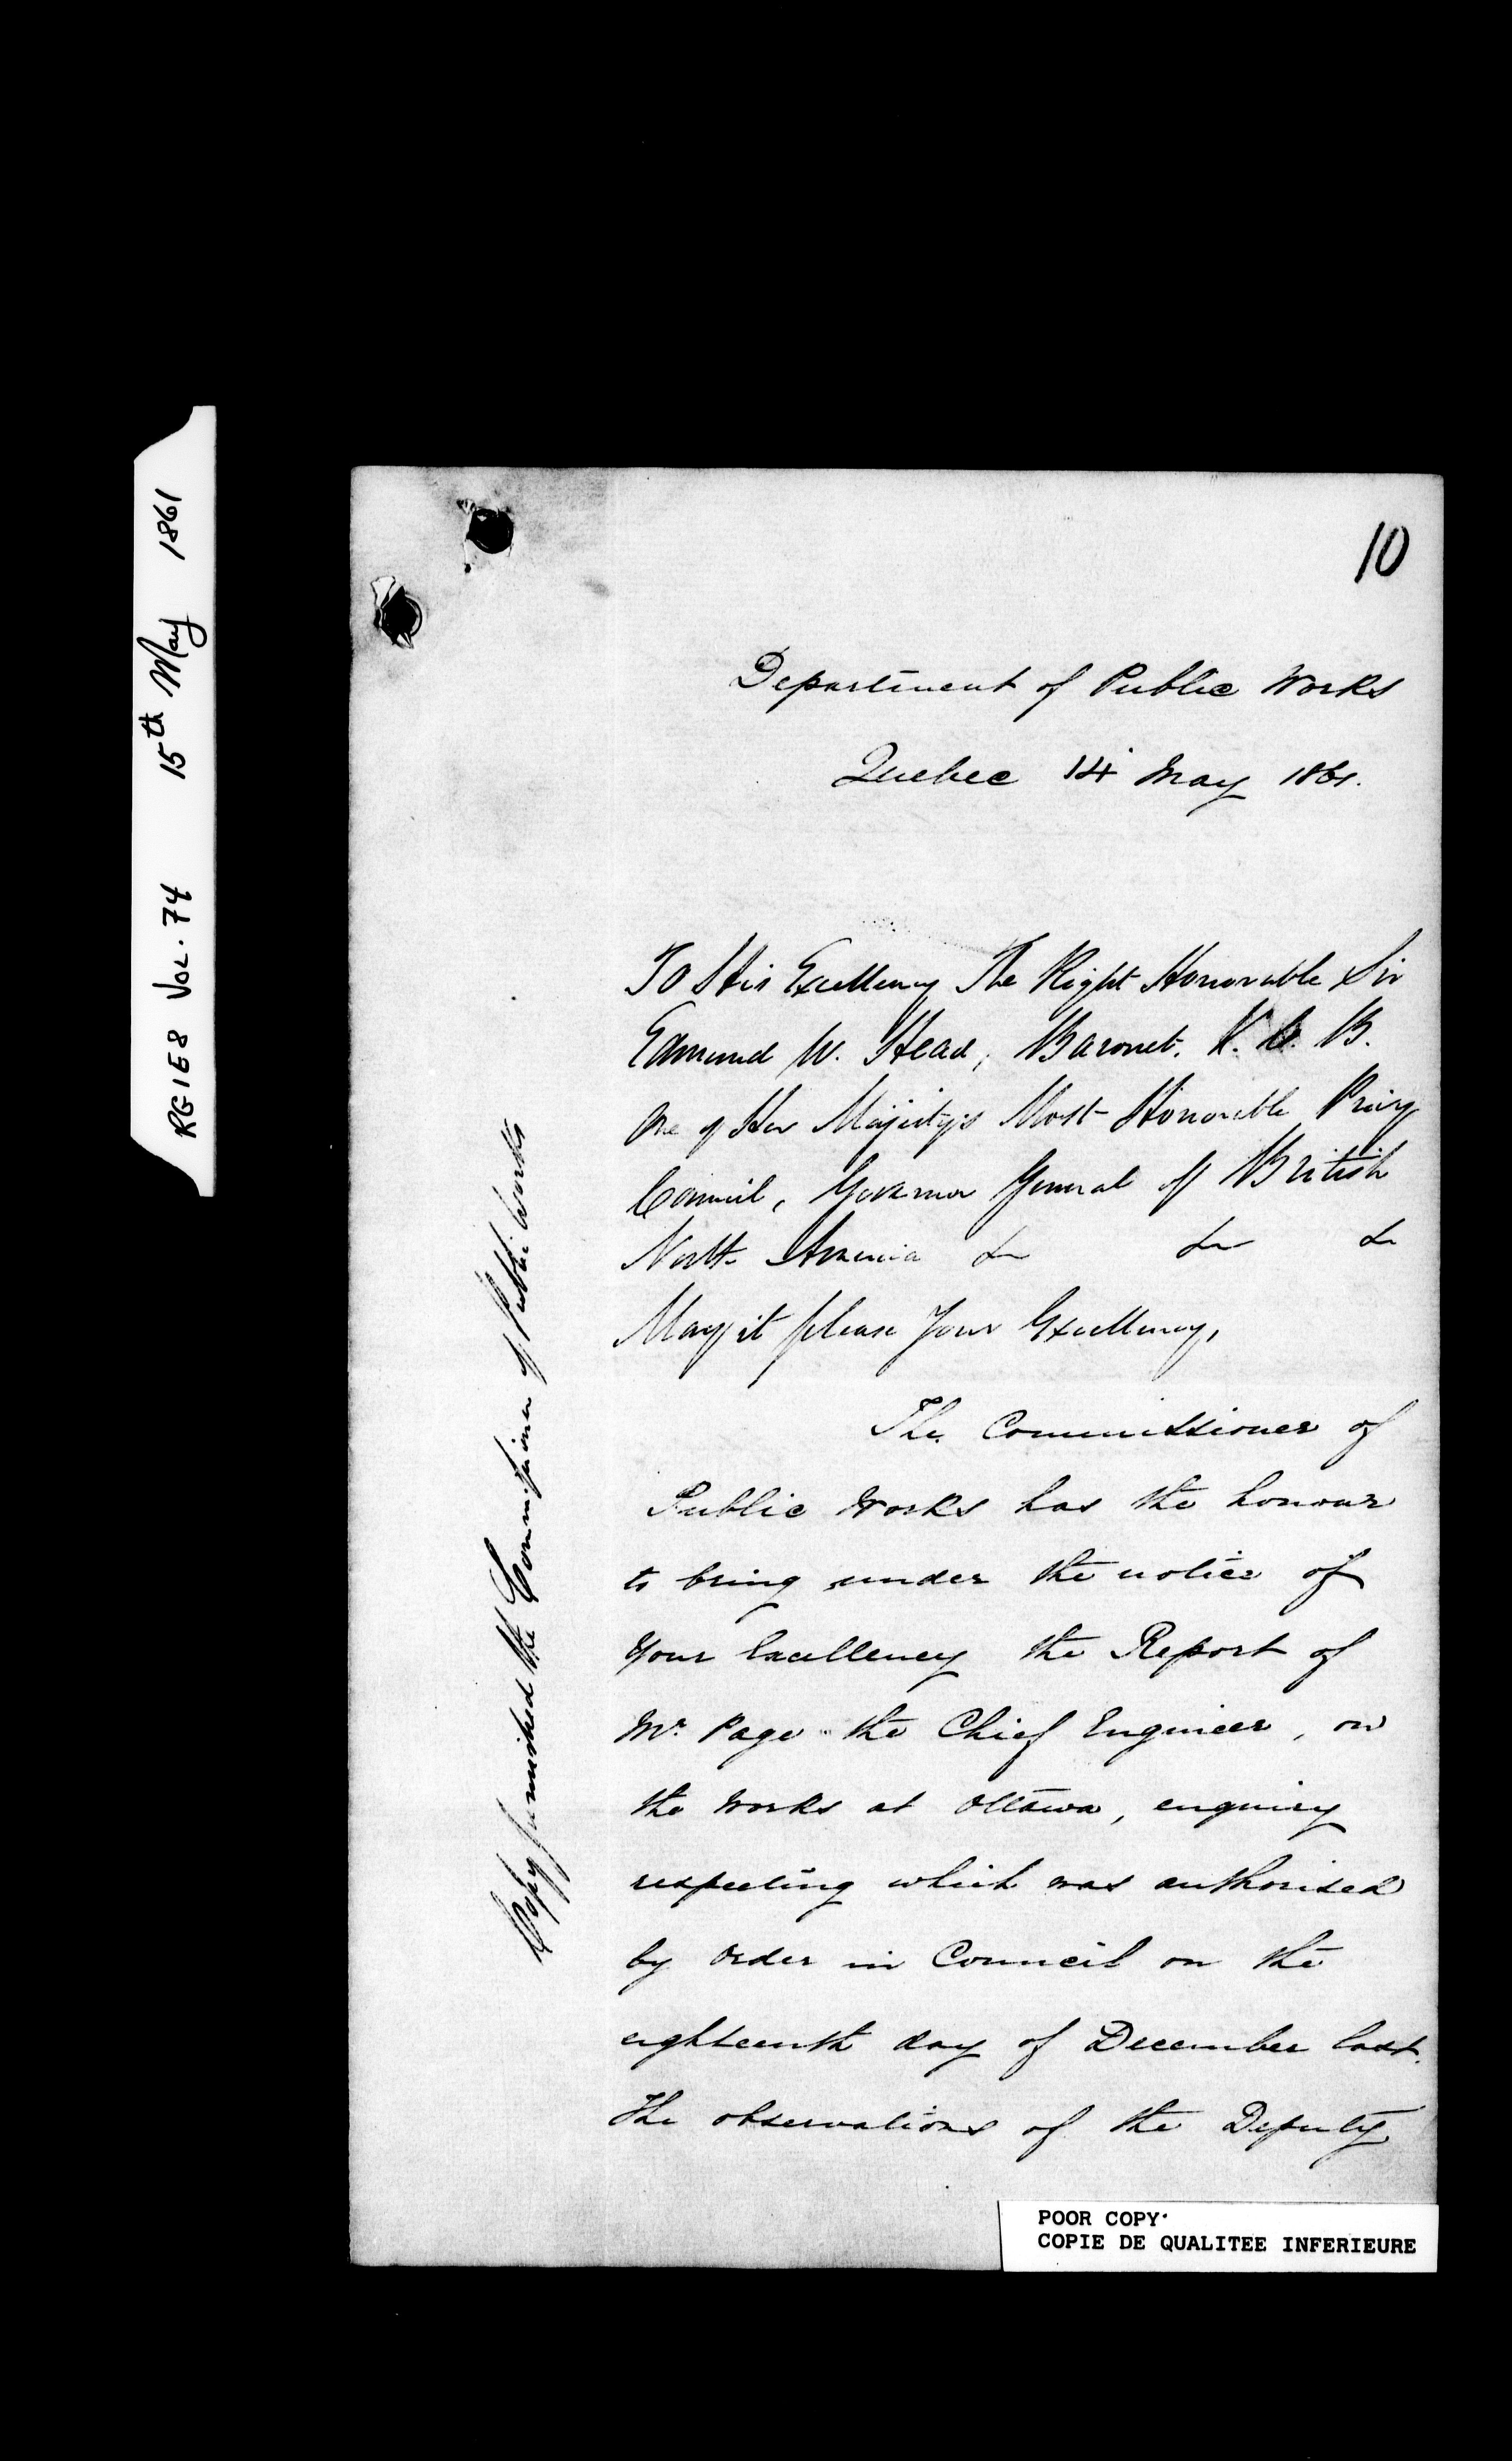 RG1E8 Vol. 74 15th May 1861
10
Department of Public Works
Quebec 14 May 1861.
To His Excellency The Right Honorable Sir
Edmund W. Head, Baronet. K. C. B.
One of Her Majesty's Most Honorable Privy
Council, Governor General of British
North America &c &c &c
May it please Your Excellency,
The Commissioner of
Public Works has the honour
to bring under the notice of
Your Excellency the Report of
Mr. Page the Chief Engineer, on
the works at Ottawa, enquiry
respecting which was authorised
by Order in Council on the
eighteenth day of December last.
The observations of the Deputy
Copy furnished the Commissioner of Public Works
POOR COPY
COPIE DE QUALITEE INFERIEURE